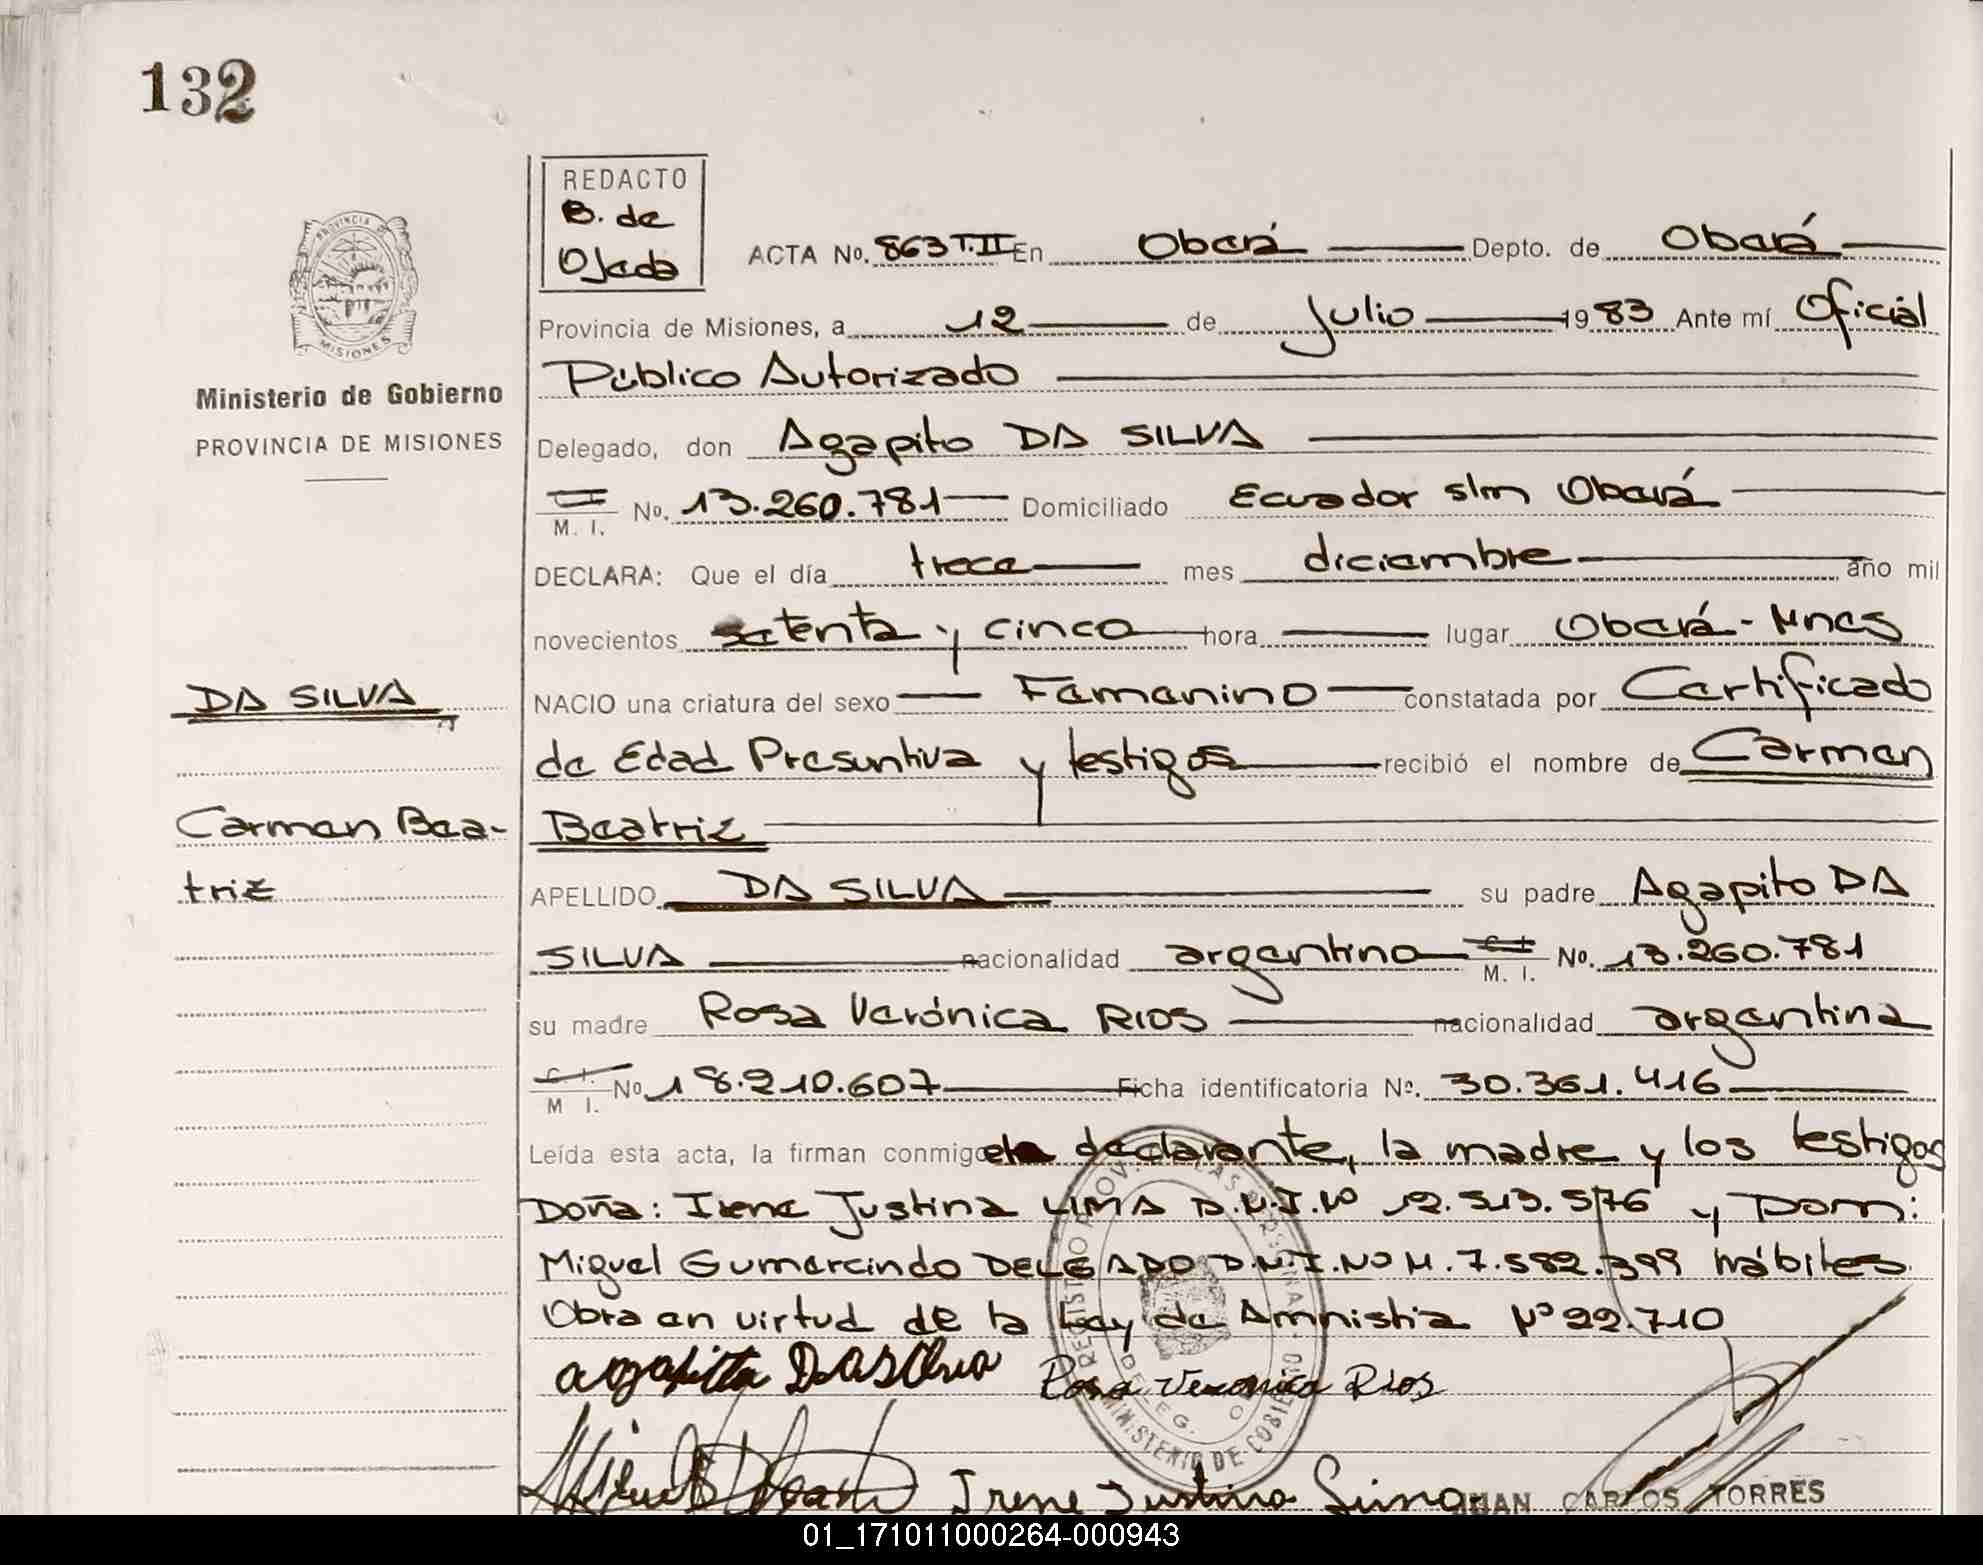 132
REDACTO
B. de
Ojeda
ACTA No. 863 T.II En Oberá Depto. de Oberá
Provincia de Misiones, a 12 de Julio 1983 Ante mí Oficial
Público Autorizado
Delegado, don Agapito DA SILVA
M. I. No. 13.260.781 Domiciliado Ecuador s/m Oberá
DECLARA: Que el día trece mes diciembre año mil
novecientos setenta y cinco hora lugar Oberá - Mnes
NACIO una criatura del sexo Femenino constatada por Certificado
de Edad Presuntiva y testigos recibió el nombre de Carmen
Beatriz
APELLIDO DA SILVA su padre Agapito DA
SILVA nacionalidad argentino C. I. M. I. No. 13.260.781
su madre Rosa Verónica RIOS nacionalidad argentina
C. I. M I. No 18.210.607 Ficha identificatoria Nº. 30.361.416
Leída esta acta, la firman conmigo el declarante, la madre y los testigos
Doña: Irene Justina LIMA D.N.I.Nº 12.513.576 y Dom:
Miguel Gumercindo DELGADO D.N.I.NO M. 7.582.399 hábiles
Obra en virtud de la Ley de Amnistia Nº 22.710
agapito DASilva Rosa Veronica Rios
Irene Justina Lima JUAN CARLOS TORRES
PROVINCIA DE
MISIONES
Ministerio de Gobierno
PROVINCIA DE MISIONES
DA SILVA
Carmen Bea-
triz
01_171011000264-000943